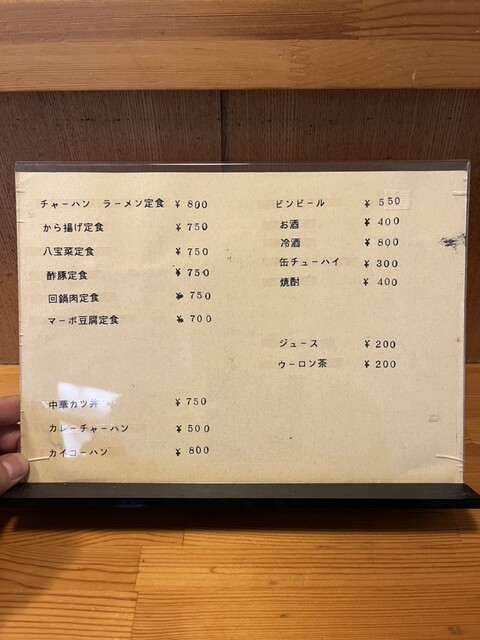 チャーハン ラーメン定食 ¥800
から揚げ定食 ¥750
八宝菜定食 ¥750
酢豚定食 ¥750
回鍋肉定食 ¥750
マーボ豆腐定食 ¥700
中華カツ丼 ¥750
カレーチャーハン ¥500
カイコーハン ¥800
ビンビール ¥550
お酒 ¥400
冷酒 ¥800
缶チューハイ ¥300
焼酎 ¥400
ジュース ¥200
ウーロン茶 ¥200